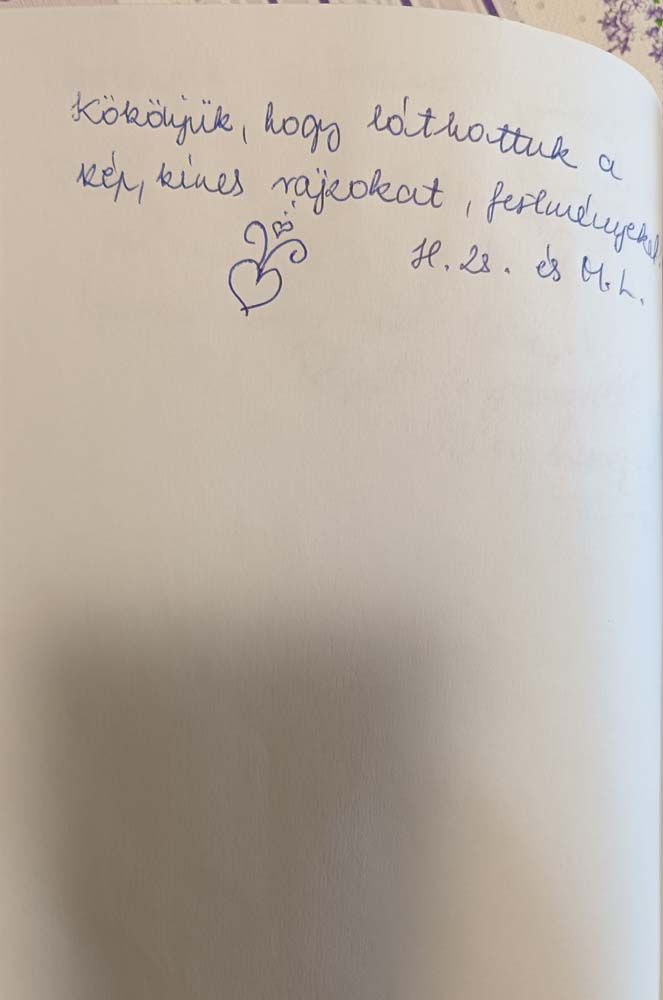 Kököljük, hogy láthattuk a
kép, kines rajzokat, festményeket.
H. Zs. és M. L.